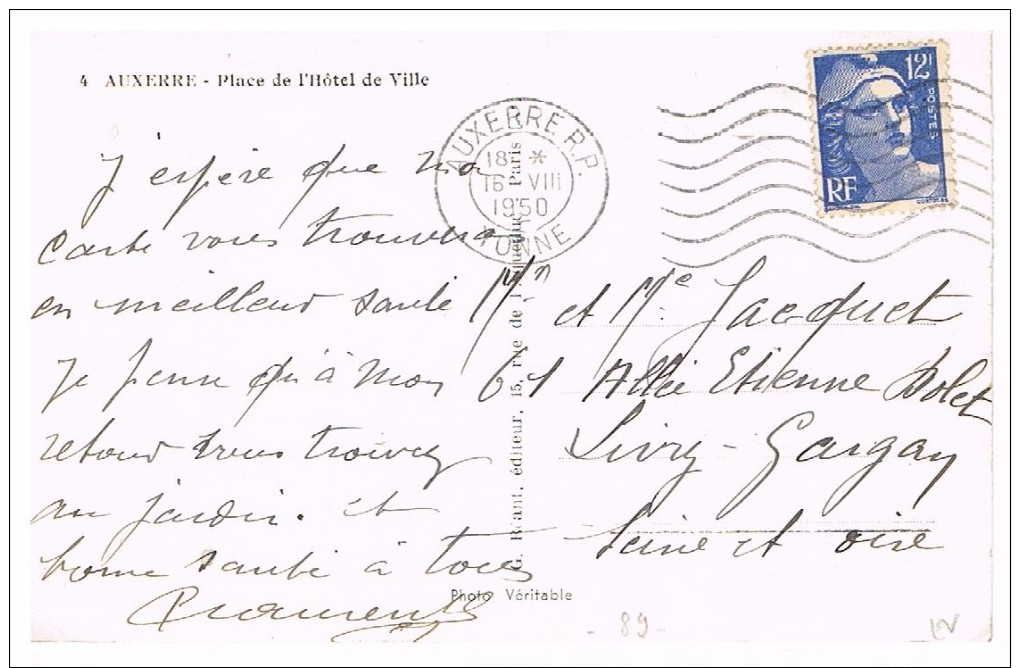 4 AUXERRE - Place de l'Hôtel de Ville
12F
POSTES
RF
AUXERRE R.P.
18H *
16 VIII
1950
YONNE
J'espère que ma
carte vous trouvera
en meilleur santé
Je pense qu'à mon
retour vous trouvez
au jardin. et
bonne santé à tous
Mr et Me Jacquet
61 Allée Etienne Dolet
Livry-Gargan
Seine et oise
G. Réant, éditeur, 15, rue de Paris
Photo Véritable
- 89 -